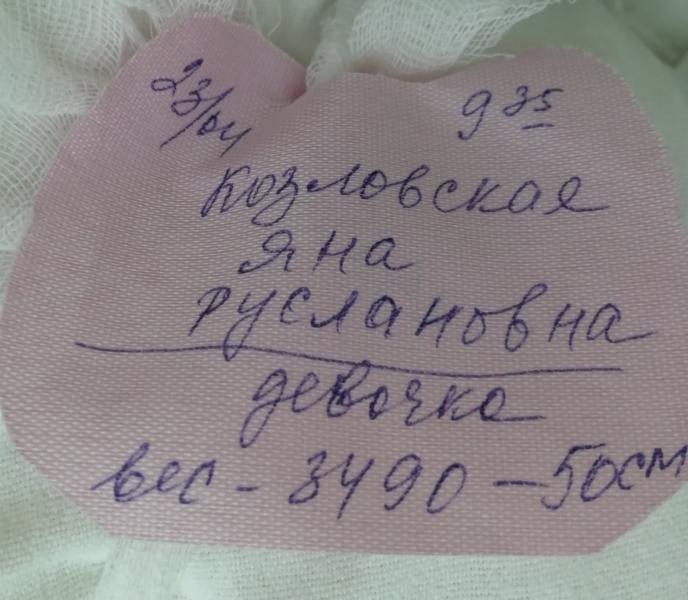 23/04 9 35
Козловская
Яна
Руслановна
девочка
вес - 3490 - 50см